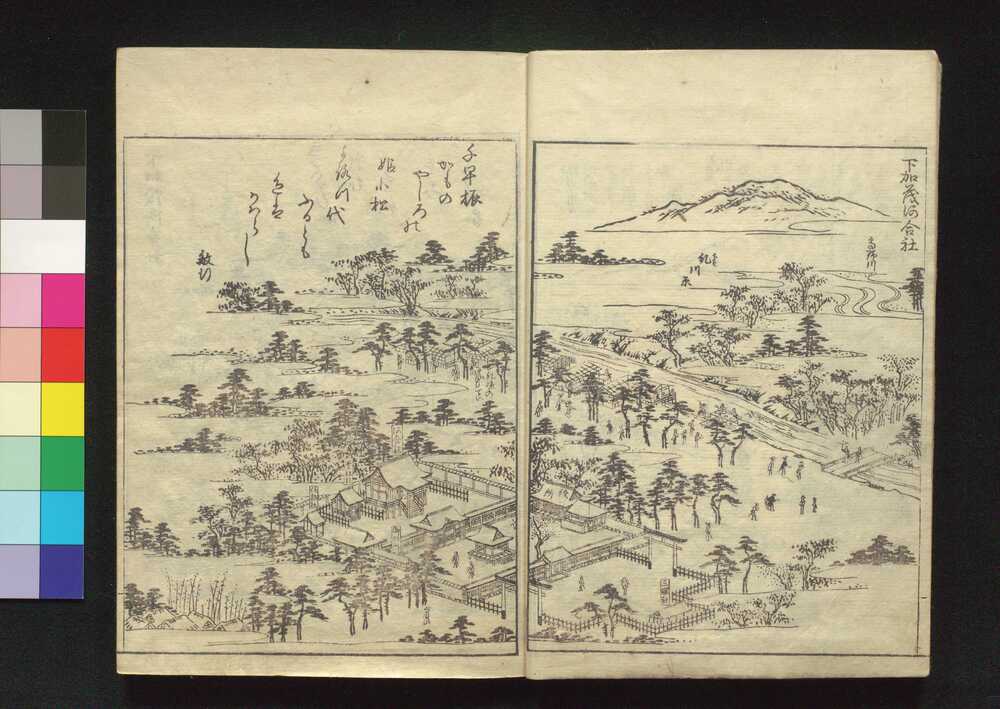 下加茂河合社
高野川
糺川原
千早振
かもの
やしろの
姫小松
よろづ代
ふるとも
色は
かはらじ
敏行